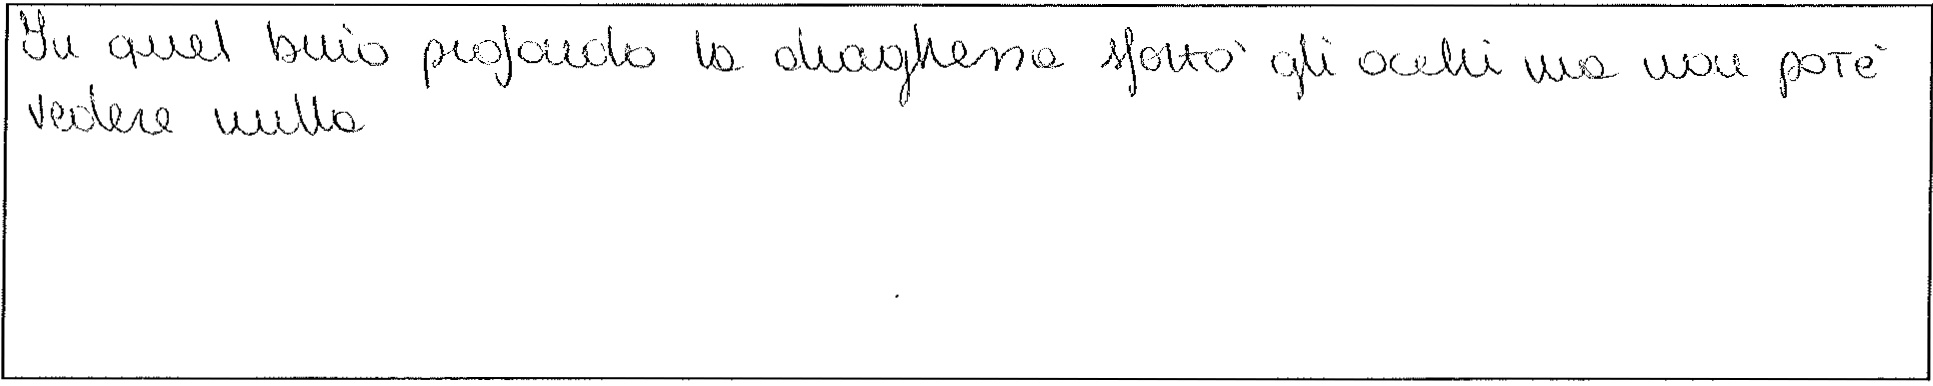 In quel buio profondo la draghessa sforzò gli occhi ma non potè
vedere nulla